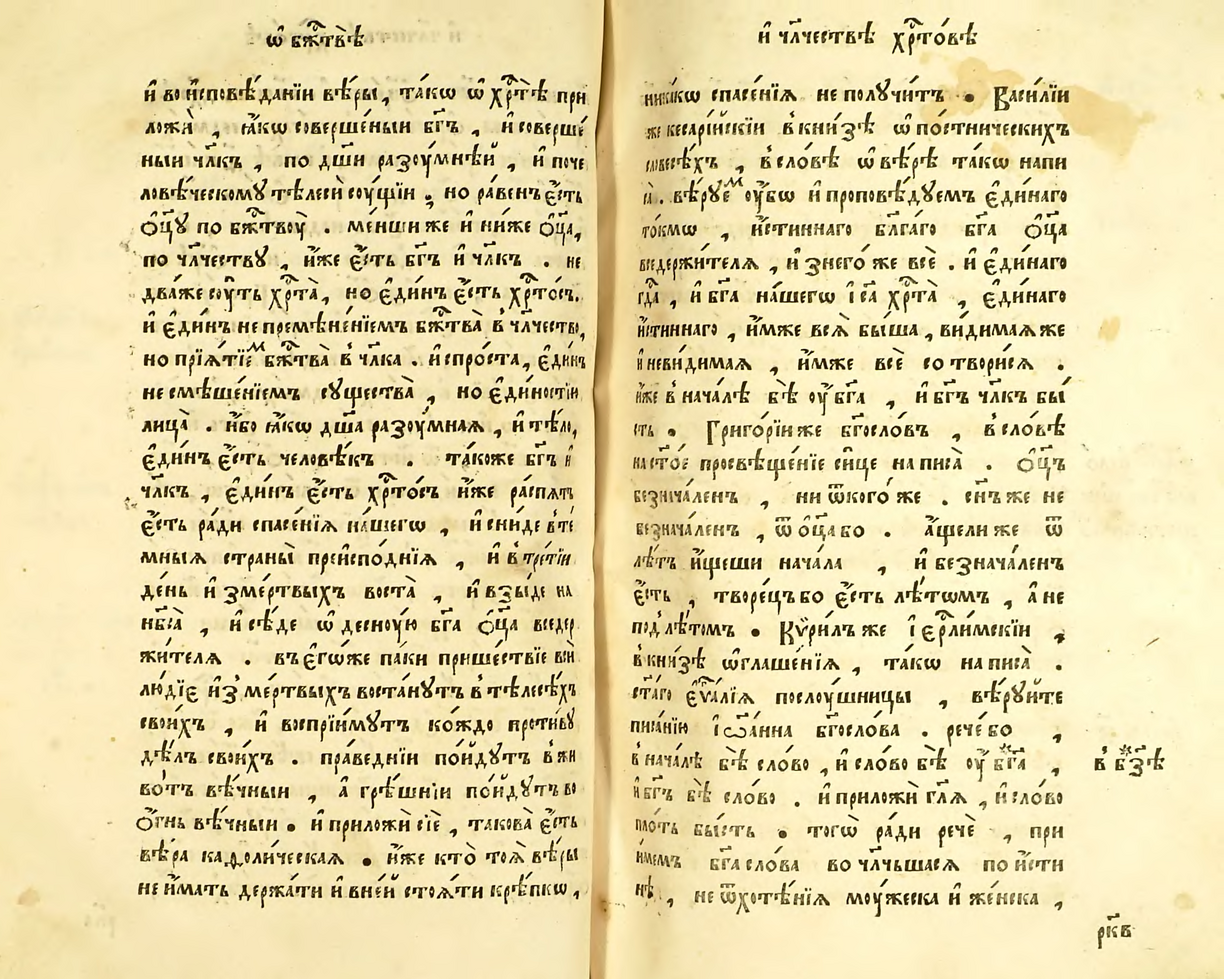 ѡ҆ бж҃твѣ̀
и҆ во и҆сповѣ́данїи вѣ́ры , та́кѡ ѡ҆ хр҃тѣ̀ при
ложѝ , ꙗ҆́кѡ соверше́ныи бг҃ъ , и҆ соверше́
ныи чл҃къ , по дш҃и разꙋ́мнѣй , и҆ поче
ловѣ́ческомꙋ тѣлесѝ сꙋ́щїи , но ра́венъ є҆́сть
ѻ҆ц҃ꙋ̀ по бж҃твꙋ̀ . ме́нши же и҆ ни́же ѻ҆ц҃а̀,
по чл҃честву , и҆́же є҆́сть бг҃ъ и҆ чл҃къ . не
два́же сꙋ́ть хр҃та̀, но є҆ди́нъ є҆́сть хр҃то́съ.
и҆ є҆ди́нъ не премѣне́нїемъ бж҃тва̀ в чл҃чество,
но прїѧ́тїем бж҃тва̀ в чл҃ка . и҆ спро́ста, є҆ди́нъ
не смѣше́нїемъ существа̀ , но є҆ди́ностїи
лица̀ . и҆́бо ꙗ҆́кѡ дш҃а̀ разꙋ́мнаѧ , и҆ тѣ́ло,
є҆ди́нъ є҆́сть человѣ́къ . та́коже бг҃ъ и҆
чл҃къ , є҆ди́нъ є҆́сть хр҃то́съ и҆́же распѧ́тъ
є҆́сть ра́ди спасе́нїѧ на́шегѡ , и҆ сни́де в те́
мныѧ страны̀ преи҆спо́днїѧ , и҆ в тре́тїи
де́нь и҆з̾ме́ртвыхъ воста̀ , и҆ взы́де на
нб҃са̀ , и҆ сѣ́де ѡ҆ деснꙋ́ю бг҃а ѻ҆ц҃а̀ вседер
жи́телѧ . въ є҆гѡ́же па́ки прише́ствїе вси̂
лю́дїе и҆з̾ ме́ртвыхъ воста́нутъ в тѣлесѣ́хъ
свои́хъ , и҆ воспрїи́мутъ ко́ждо проти́ву
дѣ́лъ свои́хъ . пра́веднїи по́йдꙋтъ в жи
во́тъ вѣ́чныи , а҆ грѣ́шнїи по́йдꙋтъ во
ѻ҆́гнь вѣ́чныи . и҆ приложѝ сїѐ , такова̀ є҆́сть
вѣ́ра каѳоли́ческаѧ . и҆́же кто̀ тоѧ̀ вѣ́ры
не и҆́мать держа́ти и҆ в не́й стоѧ́ти крѣ́пкѡ ,
и҆ чл҃чествѣ хр҃то́вѣ
ника́кѡ спасе́нїѧ не полꙋ́читъ . Васи́лїи
же кесарі́йскїи в кни́зѣ ѡ҆ по́стнических
словесѣ́хъ , в сло́вѣ ѡ҆ вѣ́рѣ та́кѡ напи
са̀ . вѣ́руем ᲂу҆́бѡ и҆ проповѣ́дꙋемъ є҆ди́наго
то́кмѡ , и҆́стиннаго бл҃га́го бг҃а ѻ҆ц҃а̀
вседержи́телѧ , и҆з̾ него́ же всѐ . и҆ є҆ди́наго
гд҃а , и҆ бг҃а на́шегѡ і҆с҃а хр҃та̀ , є҆ди́наго
и҆́стиннаго , и҆́мже всѧ̀ бы́ша , ви́димаѧ же
и҆ неви́димаѧ , и҆́мже всѐ сотвори́сѧ .
и҆́же в нача́лѣ бѣ̀ ᲂу҆ бг҃а , и҆ бг҃ъ чл҃къ бы́
сть . Григо́рїи же бг҃осло́въ , в сло́вѣ
на ст҃о́е просвѣще́нїе си́це написа̀ . ѻ҆ц҃ъ
безнача́ленъ , ни ѿ кого́ же . сн҃ъ же не
безнача́ленъ , ѿ ѻ҆ц҃а бо . а҆́ще ли же ѿ
лѣ́тъ и҆́щеши нача́ла , и҆ безнача́ленъ
є҆́сть , творе́цъ бо є҆́сть лѣ́тѡмъ , а҆ не
под̾ лѣ́томъ . Кѷри́лъ же і҆ер҃ли́мскїи ,
в кни́зѣ ѡ҆глаше́нїѧ , та́кѡ написа̀ .
ст҃а́го є҆ѵ҃а́лїѧ послꙋ́шницы , вѣ́руйте
писа́нїю і҆ѡа́нна бг҃осло́ва . рече́ бо ,
в нача́лѣ бѣ̀ сло́во , и҆ сло́во бѣ̀ ᲂу҆ бг҃а ,
в бз҃ѣ
и҆ бг҃ъ бѣ̀ сло́во . и҆ приложѝ гл҃ѧ , и҆ сло́во
пло́ть бы́сть . тогѡ̀ ра́ди речѐ , при
и҆́мемъ бг҃а сло́ва во чл҃чьшасѧ по и҆́сти
нѣ , не ѿ хотѣ́нїѧ мꙋ́жеска и҆ же́нска ,
рк҃в